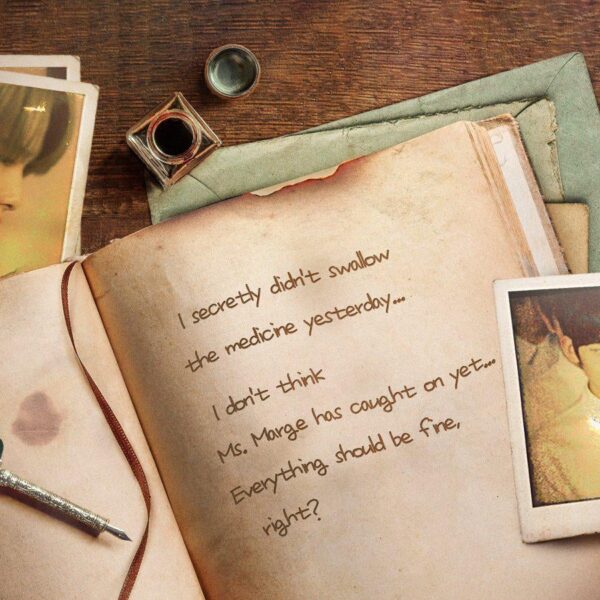 I secretly didn't swallow
the medicine yesterday...
I don't think
Ms. Marge has caught on yet...
Everything should be fine,
right?